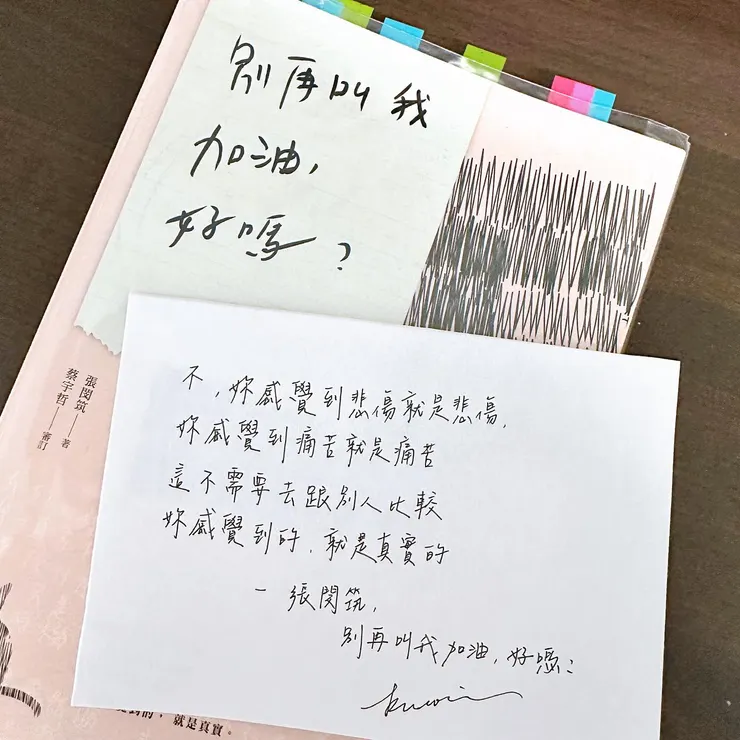 別再叫我
加油,
好嗎?
張閔筑 — 著
蔡宇哲 — 審訂
不,妳感覺到悲傷就是悲傷,
妳感覺到痛苦就是痛苦
這不需要去跟別人比較
妳感覺到的,就是真實的
— 張閔筑,
別再叫我加油,好嗎?
到的,就是真實。